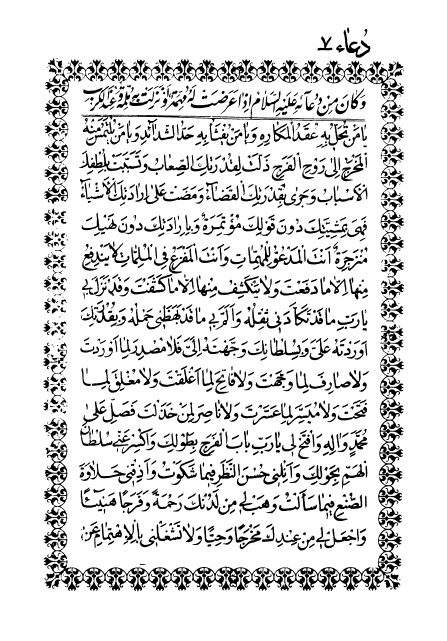 دُعاء ٧
وَكَانَ مِنْ دُعَائِهِ عَلَيْهِ السَّلَامُ إِذَا عَرَضَتْ لَهُ مُهِمَّةٌ أَوْ نَزَلَتْ بِهِ مُلِمَّةٌ وَعِنْدَ الْكَرْبِ
يَا مَنْ تُحَلُّ بِهِ عُقَدُ الْمَكَارِهِ وَيَا مَنْ يُفْثَأُ بِهِ حَدُّ الشَّدَائِدِ وَيَا مَنْ يُلْتَمَسُ مِنْهُ
الْمَخْرَجُ إِلَى رَوْحِ الْفَرَجِ ذَلَّتْ لِقُدْرَتِكَ الصِّعَابُ وَتَسَبَّبَتْ بِلُطْفِكَ
الْأَسْبَابُ وَجَرَى بِقُدْرَتِكَ الْقَضَاءُ وَمَضَتْ عَلَى إِرَادَتِكَ الْأَشْيَاءُ
فَهِيَ بِمَشِيَّتِكَ دُونَ قَوْلِكَ مُؤْتَمِرَةٌ وَبِإِرَادَتِكَ دُونَ نَهْيِكَ
مُنْزَجِرَةٌ أَنْتَ الْمَدْعُوُّ لِلْمُهِمَّاتِ وَأَنْتَ الْمَفْزَعُ فِي الْمُلِمَّاتِ لَا يَنْدَفِعُ
مِنْهَا إِلَّا مَا دَفَعْتَ وَلَا يَنْكَشِفُ مِنْهَا إِلَّا مَا كَشَفْتَ وَقَدْ نَزَلَ بِي
يَا رَبِّ مَا قَدْ تَكَأَّدَنِي ثِقْلُهُ وَأَلَمَّ بِي مَا قَدْ بَهَظَنِي حَمْلُهُ وَبِقُدْرَتِكَ
أَوْرَدْتَهُ عَلَيَّ وَبِسُلْطَانِكَ وَجَّهْتَهُ إِلَيَّ فَلَا مُصْدِرَ لِمَا أَوْرَدْتَ
وَلَا صَارِفَ لِمَا وَجَّهْتَ وَلَا فَاتِحَ لِمَا أَغْلَقْتَ وَلَا مُغْلِقَ لِمَا
فَتَحْتَ وَلَا مُيَسِّرَ لِمَا عَسَّرْتَ وَلَا نَاصِرَ لِمَنْ خَذَلْتَ فَصَلِّ عَلَى
مُحَمَّدٍ وَآلِهِ وَافْتَحْ لِي يَا رَبِّ بَابَ الْفَرَجِ بِطَوْلِكَ وَاكْسِرْ عَنِّي سُلْطَانَ
الْهَمِّ بِحَوْلِكَ وَأَنِلْنِي حُسْنَ النَّظَرِ فِيمَا شَكَوْتُ وَأَذِقْنِي حَلَاوَةَ
الصُّنْعِ فِيمَا سَأَلْتُ وَهَبْ لِي مِنْ لَدُنْكَ رَحْمَةً وَفَرَجًا هَنِيئًا
وَاجْعَلْ لِي مِنْ عِنْدِكَ مَخْرَجًا وَحِيًّا وَلَا تَشْغَلْنِي بِالْاِهْتِمَامِ عَنْ